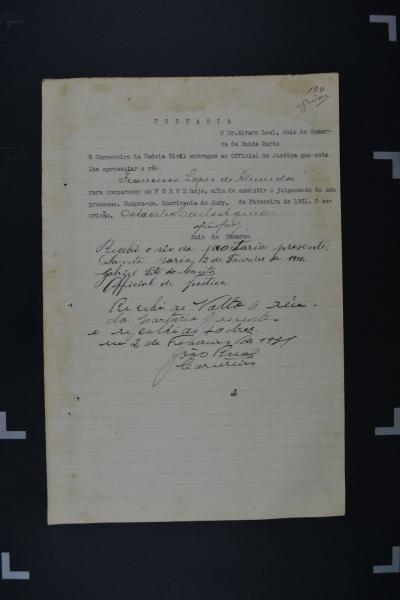 124
P O R T A R I A
O Dr. Alvaro Leal, Juiz de Comar-
ca de Santa Maria
O Carcereiro da Cadeia Civil entregue ao Official de Justiça que esta
lhe apresentar o réo
Francisco Lopes de Almeida
para comparecer no F O R U M hoje, afim de assistir o julgamento do seu
processo. Cumpra-se. Escrivania do Jury, de Fevereiro de 1931. O es-
crivão,
Juiz de Comarca
Recebi o réo da portaria presente.
Santa Maria, 2 de Fevereiro de 1931.
Gabriel
Official de Justica
Recibi de Volta o réu
da portaria presente
e
2 de Fevereiro de 1931
João
Carcereiro